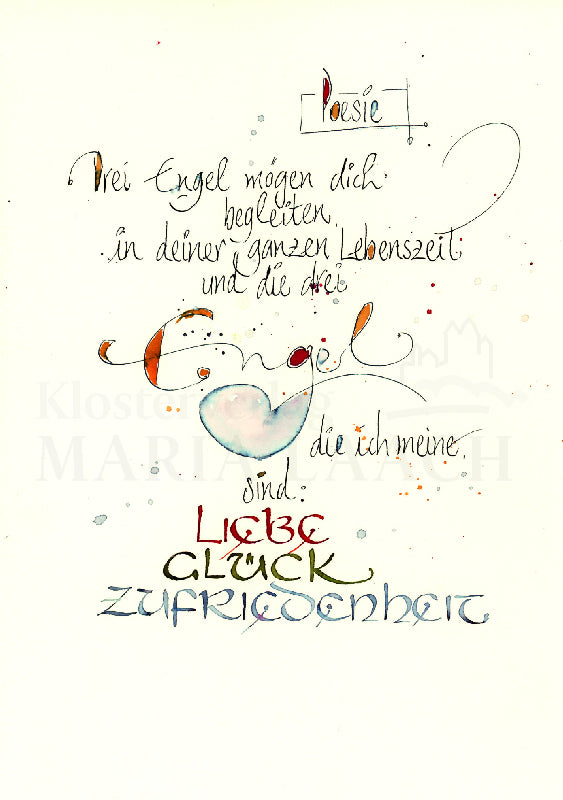 Poesie
Drei Engel mögen dich
begleiten
in deiner ganzen Lebenszeit
und die drei
Engel
Klosterverlag
MARIA LAACH
die ich meine,
sind:
LIEBE
GLÜCK
ZUFRIEDENHEIT